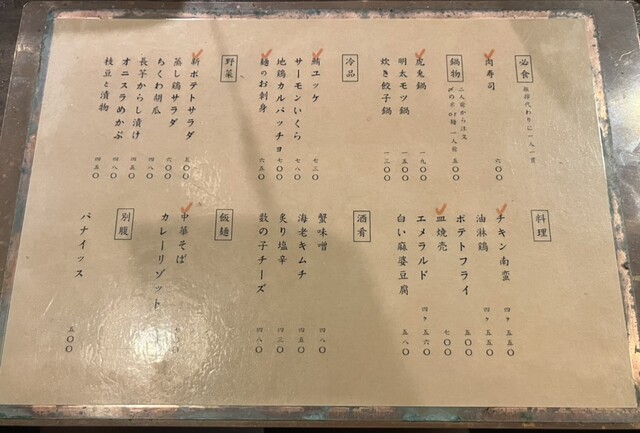 必食
お椀代わりに一人一貫
肉寿司 六〇〇
鍋物
二人前から注文
〆のラーメン 一人前 五〇〇
虎兎鍋 一九〇〇
明太モツ鍋 一五〇〇
炊き餃子鍋 一三〇〇
冷品
鮪ユッケ 七三〇
サーモンいくら 七八〇
地鶏カルパッチョ 七〇〇
麺のお刺身 六五〇
野菜
新ポテトサラダ 五〇〇
蒸し鶏サラダ 六〇〇
ちくわ胡瓜 四八〇
長芋からし漬け 四五〇
オニスラめかぶ 四八〇
枝豆と漬物 四五〇
料理
チキン南蛮 四ヶ 五五〇
油淋鶏 四ヶ 五五〇
ポテトフライ 五〇〇
皿焼売 七〇〇
エメラルド 四ヶ 五六〇
白い麻婆豆腐 五八〇
酒肴
蟹味噌 四八〇
海老キムチ 四五〇
炙り塩辛 四三〇
数の子チーズ 四八〇
飯麺
中華そば
カレーリゾット
別腹
バナイッス 五〇〇